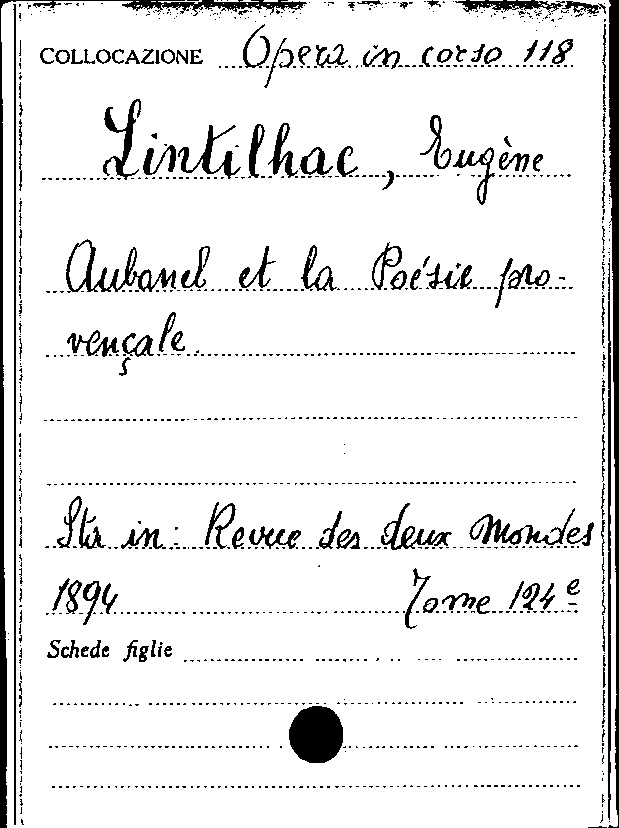 COLLOCAZIONE Opera in corso 118
Lintilhac, Eugène
Aubanel et la Poésie pro-
vençale.
Sta in: Revue des deux Mondes
1894 Tome 124e
Schede figlie